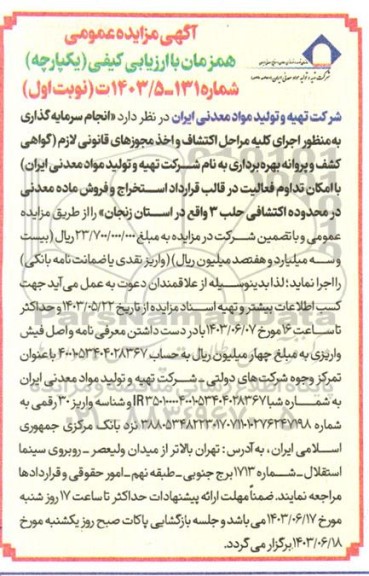 آگهی مزایده عمومی
همزمان با ارزیابی کیفی (یکپارچه)
شماره ۱۳۱-۱۴۰۳/۵ت (نوبت اول)
شرکت تهیه و تولید مواد معدنی ایران در نظر دارد «انجام سرمایه گذاری
به منظور اجرای کلیه مراحل اکتشاف و اخذ مجوزهای قانونی لازم (گواهی
کشف و پروانه بهره برداری به نام شرکت تهیه و تولید مواد معدنی ایران)
با امکان تداوم فعالیت در قالب قرارداد استخراج و فروش ماده معدنی
در محدوده اکتشافی حلب ۳ واقع در استان زنجان» را از طریق مزایده
عمومی و با تضمین شرکت در مزایده به مبلغ ۲۳/۷۰۰/۰۰۰/۰۰۰ ریال (بیست
و سه میلیارد و هفتصد میلیون ریال) (واریز نقدی یا ضمانت نامه بانکی)
را اجرا نماید؛ لذا بدینوسیله از علاقمندان دعوت به عمل می آید جهت
کسب اطلاعات بیشتر و تهیه اسناد مزایده از تاریخ ۱۴۰۳/۰۵/۲۲ و حداکثر
تا ساعت ۱۶ مورخ ۱۴۰۳/۰۶/۰۷ با در دست داشتن معرفی نامه و اصل فیش
واریزی به مبلغ چهار میلیون ریال به حساب ۴۰۰۱۰۵۳۴۰۴۰۲۸۳۶۷ با عنوان
تمرکز وجوه شرکت های دولتی - شرکت تهیه و تولید مواد معدنی ایران
به شماره شبا و شناسه واریز ۳۰ رقمی به
شماره نزد بانک مرکزی جمهوری
اسلامی ایران، به آدرس: تهران بالاتر از میدان ولیعصر - روبروی سینما
استقلال - شماره ۱۷۱۳ برج جنوبی - طبقه نهم - امور حقوقی و قراردادها
مراجعه نمایند. ضمناً مهلت ارائه پیشنهادات حداکثر تا ساعت ۱۷ روز شنبه
مورخ ۱۴۰۳/۰۶/۱۷ می باشد و جلسه بازگشایی پاکات صبح روز یکشنبه مورخ
۱۴۰۳/۰۶/۱۸ برگزار می گردد.